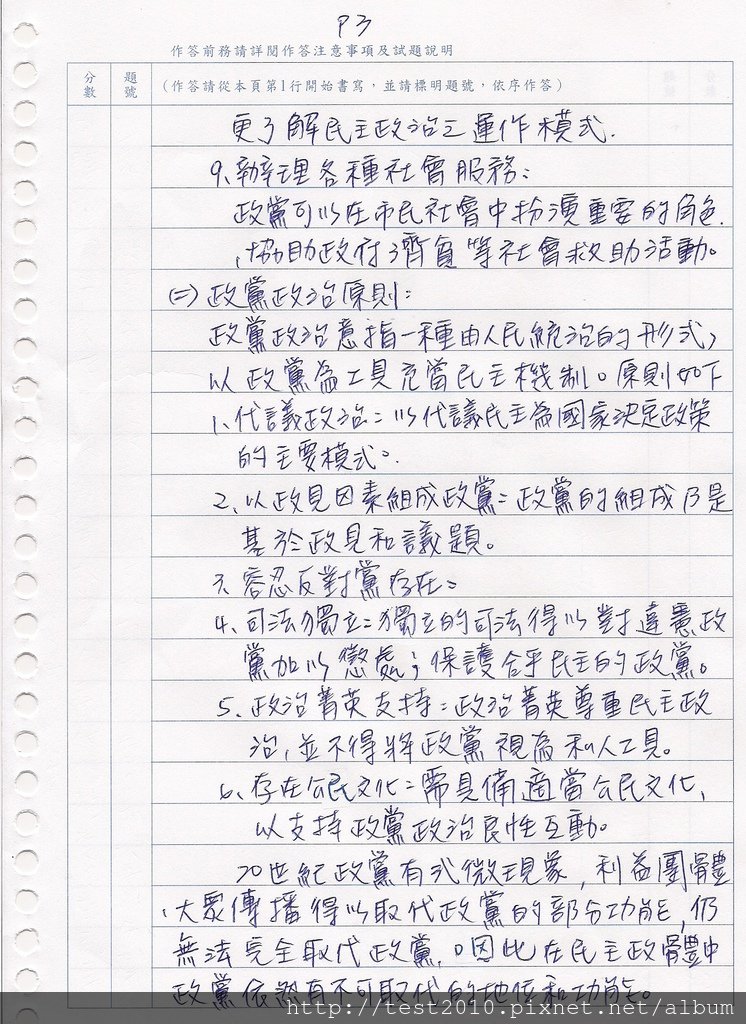 P3
作答前務請詳閱作答注意事項及試題說明
分數
題號
(作答請從本頁第1行開始書寫,並請標明題號,依序作答)
更了解民主政治之運作模式.
9、辦理各種社會服務:
政黨可以在市民社會中扮演重要的角色.
,協助政府濟貧等社會救助活動。
(二)政黨政治原則:
政黨政治意指一種由人民統治的形式,
以政黨為工具充當民主機制。原則如下
1、代議政治:以代議民主為國家決定政策
的主要模式。
2、以政見因素組成政黨:政黨的組成乃是
基於政見和議題。
3、容忍反對黨存在:
4、司法獨立:獨立的司法得以對違憲政
黨加以懲處;保護合乎民主的政黨。
5、政治菁英支持:政治菁英尊重民主政
治,並不得將政黨視為私人工具。
6、存在公民文化:需具備適當公民文化,
以支持政黨政治良性互動。
20世紀政黨有式微現象,利益團體
、大眾傳播得以取代政黨的部分功能,仍
無法完全取代政黨,。因此在民主政體中
政黨依然有不可取代的地位和功能。
http://test2010.pixnet.net/album